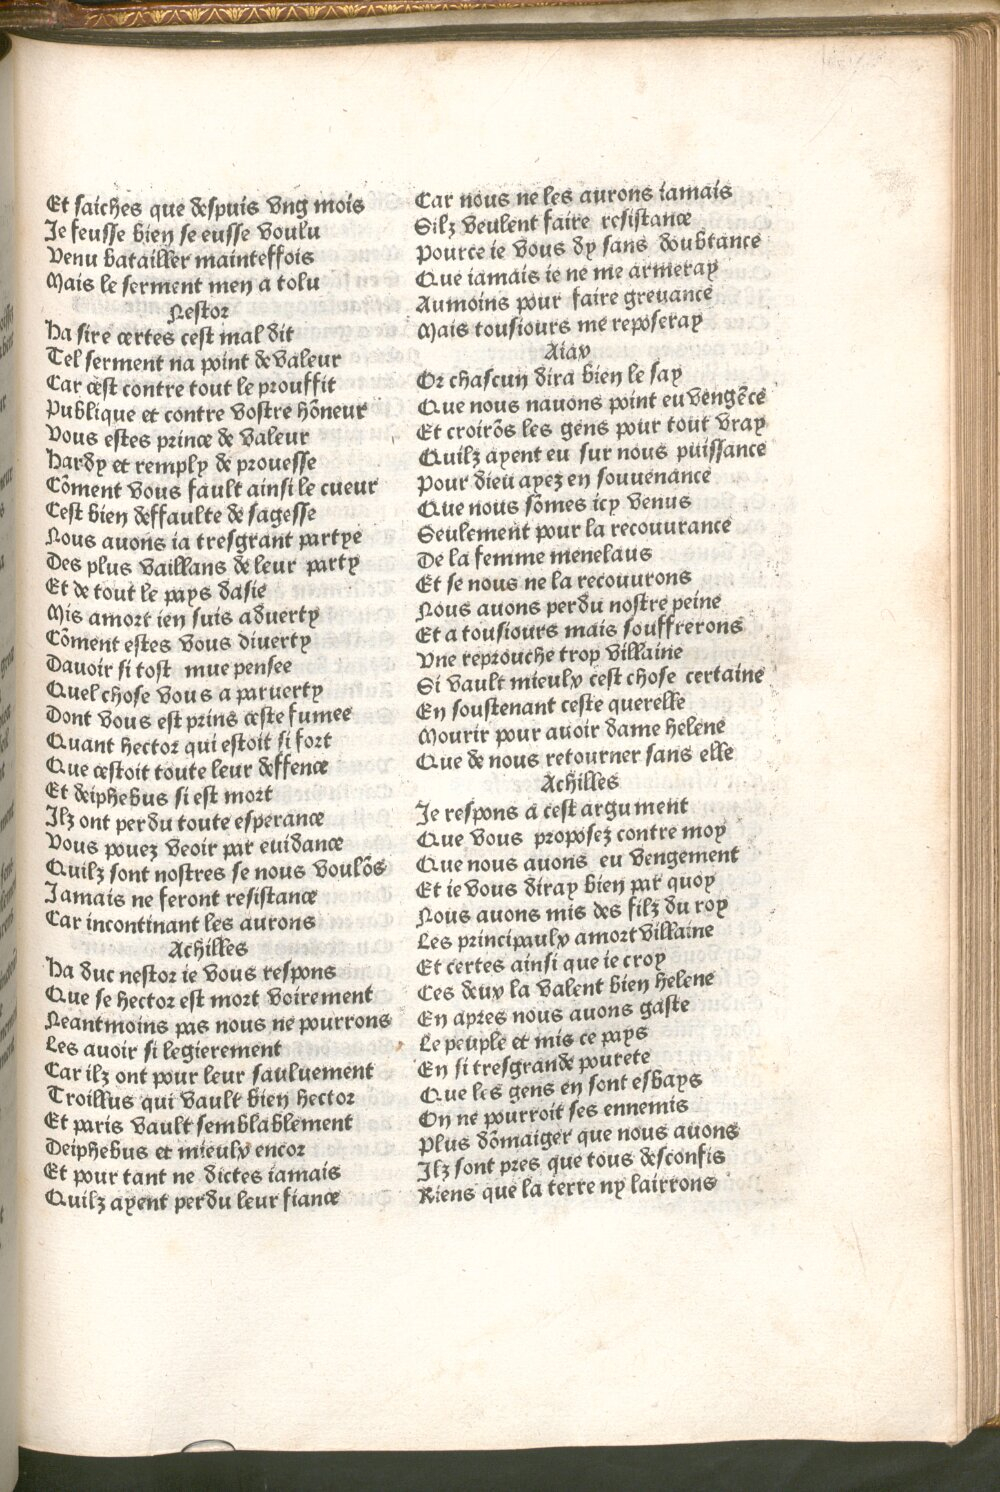 Et saiches que despuis vng mois
Je feusse bien se eusse voulu
Venu batailler mainteffois
Mais le serment men a tolu
Nestor
Ha sire certes cest mal dit
Tel serment na point de valeur
Car cest contre tout le prouffit
Publique et contre vostre hõneur
Vous estes prince de valeur
Hardy et remply de prouesse
Cõment vous fault ainsi le cueur
Cest bien deffaulte de sagesse
Nous auons ia tresgrant partye
Des plus vaillans de leur party
Et de tout le pays dasie
Mis amort ien suis aduerty
Cõment estes vous diuerty
Dauoir si tost mue pensee
Quel chose vous a paruerty
Dont vous est prins ceste fumee
Quant hector qui estoit si fort
Que cestoit toute leur deffence
Et deiphebus si est mort
Ilz ont perdu toute esperance
Vous pouez veoir par euidance
Quilz sont nostres se nous voulõs
Jamais ne feront resistance
Car incontinant les aurons
Achilles
Ha duc nestor ie vous respons
Que se hector est mort voirement
Neantmoins pas nous ne pourrons
Les auoir si legierement
Car ilz ont pour leur sauluement
Troillus qui vault bien hector
Et paris vault semblablement
Deiphebus et mieulx encor
Et pour tant ne dictes iamais
Quilz ayent perdu leur fiance
Car nous ne les aurons iamais
Silz veulent faire resistance
Pource ie vous dy sans doubtance
Que iamais ie ne me armeray
Aumoins pour faire greuance
Mais tousiours me reposeray
Aiax
Or chascun dira bien le say
Que nous nauons point eu vengẽce
Et croirõs les gens pour tout vray
Quilz ayent eu sur nous puissance
Pour dieu ayez en souuenance
Que nous sõmes icy venus
Seulement pour la recouurance
De la femme menelaus
Et se nous ne la recouurons
Nous auons perdu nostre peine
Et a tousiours mais souffrerons
Vne reprouche trop villaine
Si vault mieulx cest chose certaine
En soustenant ceste querelle
Mourir pour auoir dame helene
Que de nous retourner sans elle
Achilles
Je respons a cest argument
Que vous proposez contre moy
Que nous auons eu vengement
Et ie vous diray bien par quoy
Nous auons mis des filz du roy
Les principaulx amort villaine
Et certes ainsi que ie croy
Ces deux la valent bien helene
En apres nous auons gaste
Le peuple et mis ce pays
En si tresgrande pourete
Que les gens en sont esbays
On ne pourroit ses ennemis
Plus dõmaiger que nous auons
Ilz sont pres que tous desconfis
Riens que la terre ny lairrons